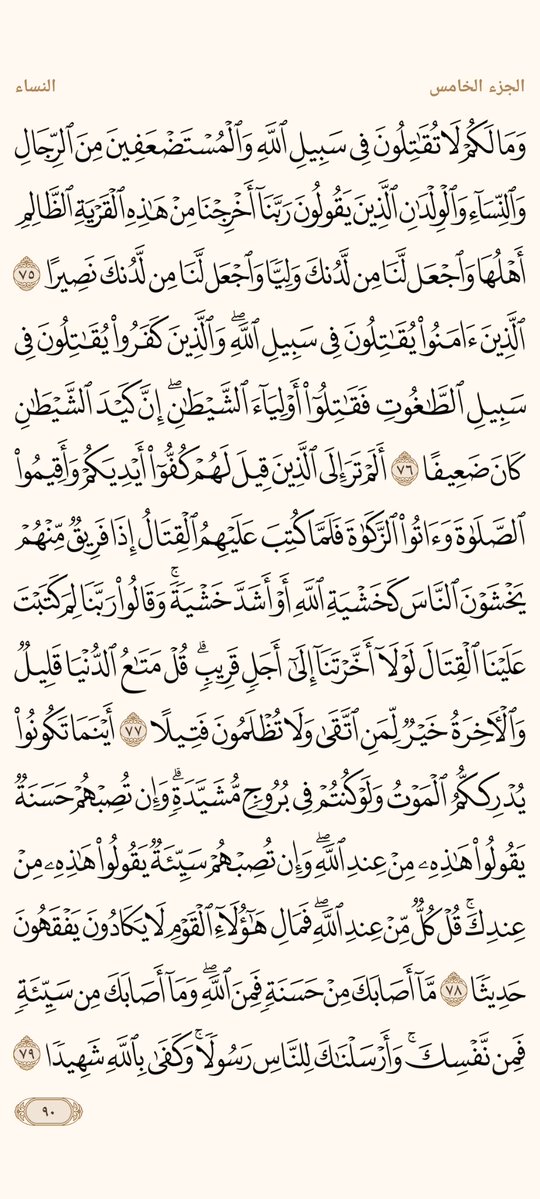 الجزء الخامس
النساء
وَمَا لَكُمْ لَا تُقَٰتِلُونَ فِى سَبِيلِ ٱللَّهِ وَٱلْمُسْتَضْعَفِينَ مِنَ ٱلرِّجَالِ
وَٱلنِّسَآءِ وَٱلْوِلْدَٰنِ ٱلَّذِينَ يَقُولُونَ رَبَّنَآ أَخْرِجْنَا مِنْ هَٰذِهِ ٱلْقَرْيَةِ ٱلظَّالِمِ
أَهْلُهَا وَٱجْعَل لَّنَا مِن لَّدُنكَ وَلِيًّا وَٱجْعَل لَّنَا مِن لَّدُنكَ نَصِيرًا ٧٥
ٱلَّذِينَ ءَامَنُوا۟ يُقَٰتِلُونَ فِى سَبِيلِ ٱللَّهِۖ وَٱلَّذِينَ كَفَرُوا۟ يُقَٰتِلُونَ فِى
سَبِيلِ ٱلطَّٰغُوتِ فَقَٰتِلُوٓا۟ أَوْلِيَآءَ ٱلشَّيْطَٰنِۖ إِنَّ كَيْدَ ٱلشَّيْطَٰنِ
كَانَ ضَعِيفًا ٧٦ أَلَمْ تَرَ إِلَى ٱلَّذِينَ قِيلَ لَهُمْ كُفُّوٓا۟ أَيْدِيَكُمْ وَأَقِيمُوا۟
ٱلصَّلَوٰةَ وَءَاتُوا۟ ٱلزَّكَوٰةَ فَلَمَّا كُتِبَ عَلَيْهِمُ ٱلْقِتَالُ إِذَا فَرِيقٌ مِّنْهُمْ
يَخْشَوْنَ ٱلنَّاسَ كَخَشْيَةِ ٱللَّهِ أَوْ أَشَدَّ خَشْيَةًۚ وَقَالُوا۟ رَبَّنَا لِمَ كَتَبْتَ
عَلَيْنَا ٱلْقِتَالَ لَوْلَآ أَخَّرْتَنَآ إِلَىٰٓ أَجَلٍ قَرِيبٍۗ قُلْ مَتَٰعُ ٱلدُّنْيَا قَلِيلٌ
وَٱلْـَٔاخِرَةُ خَيْرٌ لِّمَنِ ٱتَّقَىٰ وَلَا تُظْلَمُونَ فَتِيلًا ٧٧ أَيْنَمَا تَكُونُوا۟
يُدْرِككُّمُ ٱلْمَوْتُ وَلَوْ كُنتُمْ فِى بُرُوجٍ مُّشَيَّدَةٍۗ وَإِن تُصِبْهُمْ حَسَنَةٌ
يَقُولُوا۟ هَٰذِهِۦ مِنْ عِندِ ٱللَّهِۖ وَإِن تُصِبْهُمْ سَيِّئَةٌ يَقُولُوا۟ هَٰذِهِۦ مِنْ
عِندِكَۚ قُلْ كُلٌّ مِّنْ عِندِ ٱللَّهِۖ فَمَالِ هَٰٓؤُلَآءِ ٱلْقَوْمِ لَا يَكَادُونَ يَفْقَهُونَ
حَدِيثًا ٧٨ مَّآ أَصَابَكَ مِنْ حَسَنَةٍ فَمِنَ ٱللَّهِۖ وَمَآ أَصَابَكَ مِن سَيِّئَةٍ
فَمِن نَّفْسِكَۚ وَأَرْسَلْنَٰكَ لِلنَّاسِ رَسُولًاۚ وَكَفَىٰ بِٱللَّهِ شَهِيدًا ٧٩
٩٠